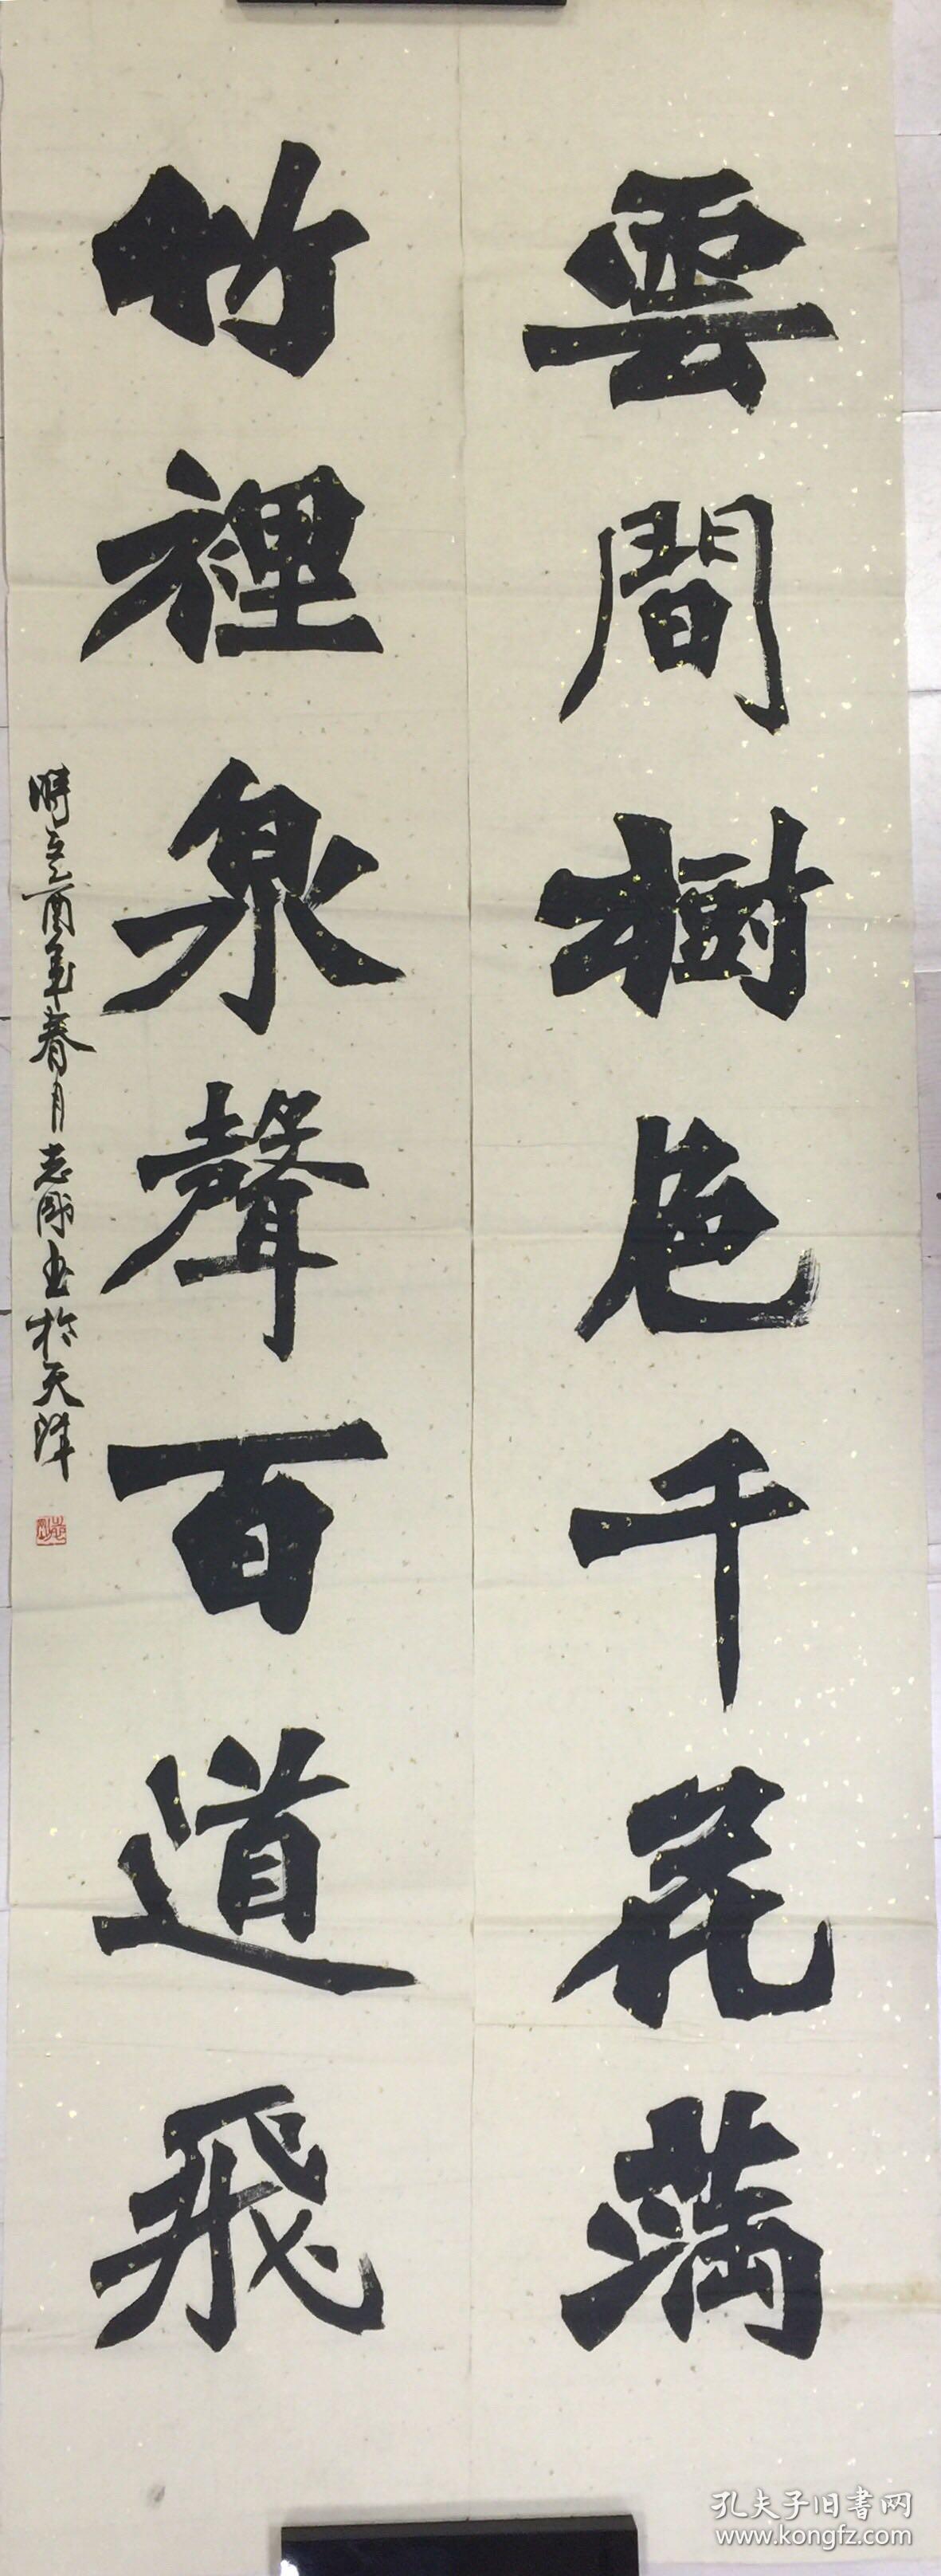 雲間樹色千花满
竹裡泉聲百道飛
時在酉年春月志剛书於天津
孔夫子旧書网
www.kongfz.com